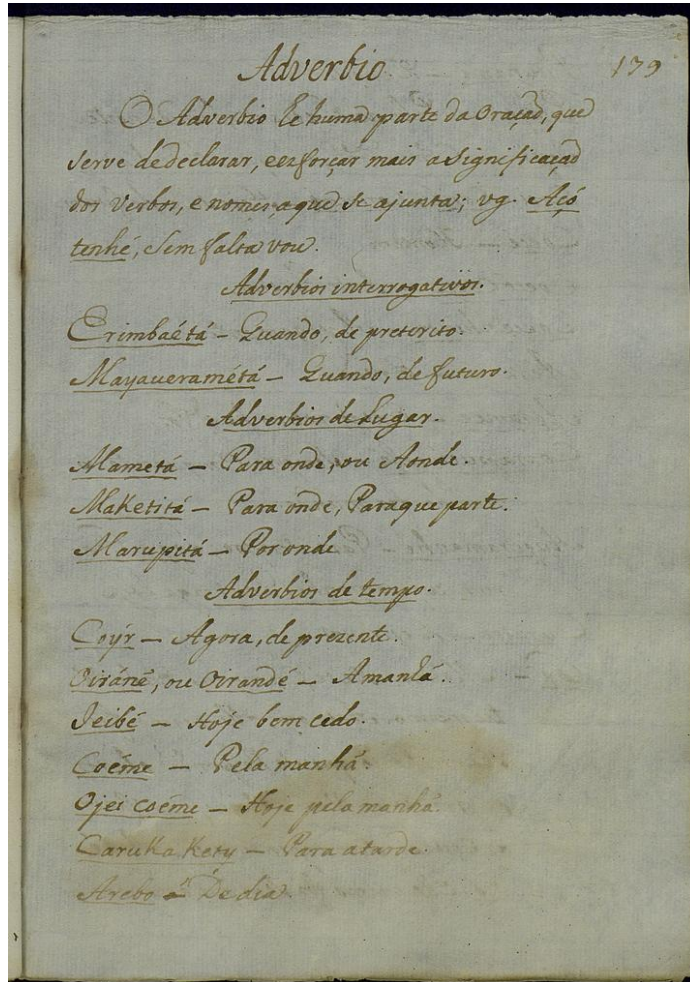 Adverbio 179
O Adverbio he huma parte da Oração, que
serve de declarar, e esforçar mais a significação
dos verbos, e nomes, a que se ajunta; vg. Açó
tenhé, sem falta vou.
Adverbios interrogativos.
Erimbaétá – Quando, de preterito.
Mayaueramétá – Quando, de futuro.
Adverbios de Lugar.
Mametá – Para onde, ou Aonde.
Maketitá – Para onde, Paraque parte.
Marupitá – Por onde
Adverbios de tempo.
Coýr – Agora, de prezente.
Oiráné, ou Oirandé – Amanhá.
Jeibé – Hoje bem cedo.
Coéme – Pela manhá.
Ojei coéme – Hoje pela manhá
Caruka Kety – Para a tarde.
Arebo – De dia.